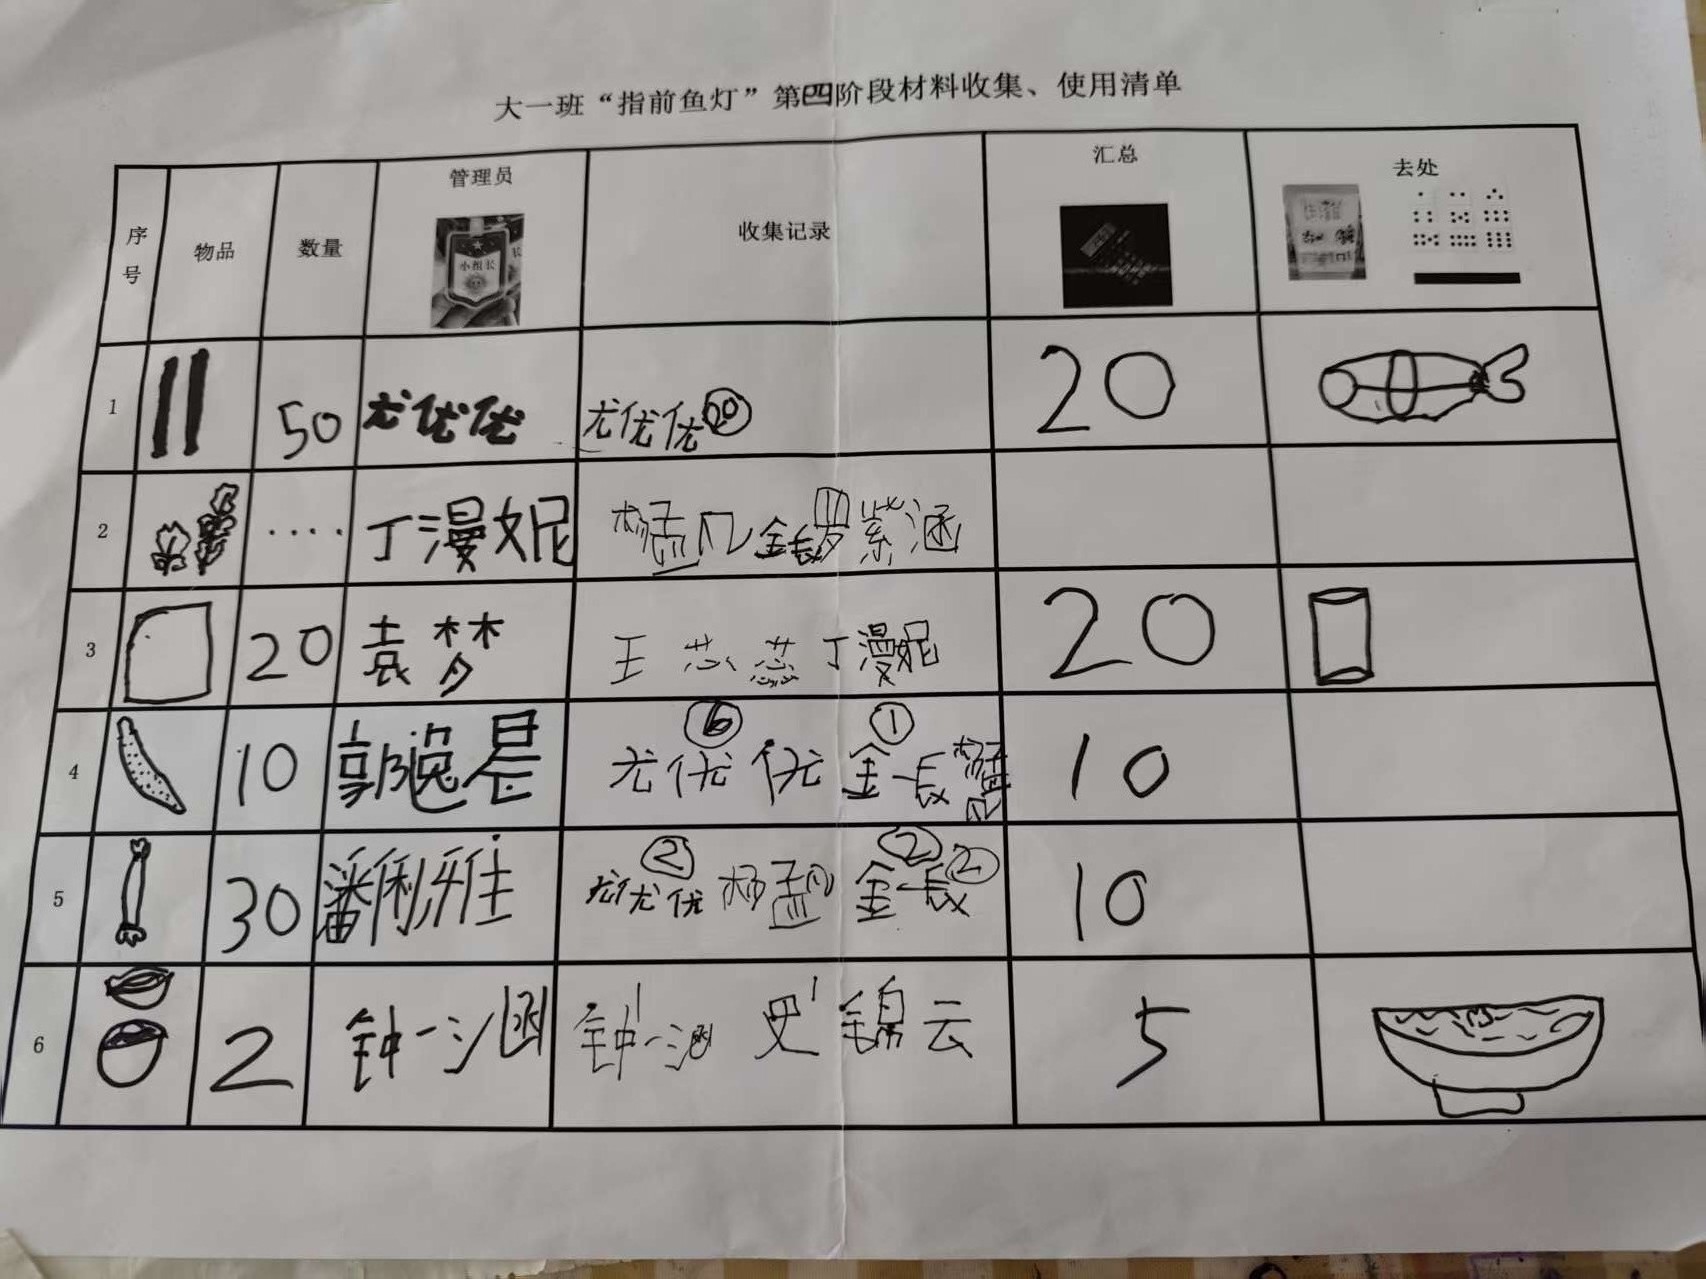 大一班“指前鱼灯”第四阶段材料收集、使用清单
序号 物品 数量 管理员 收集记录 汇总 去处
小组长
1 50 尤优优 尤优优⑳ 20
2 .... 丁漫妮 杨孟凡 金一辰 11 罗紫涵
3 20 袁梦 王芯蕊 丁漫妮 20
4 10 郭逸晨 尤优优⑥ 金一辰① 杨孟凡 10
5 30 潘俐雅 尤优优② 杨孟凡② 金一辰② 10
6 2 钟一涵 钟一涵1 史锦云1 5